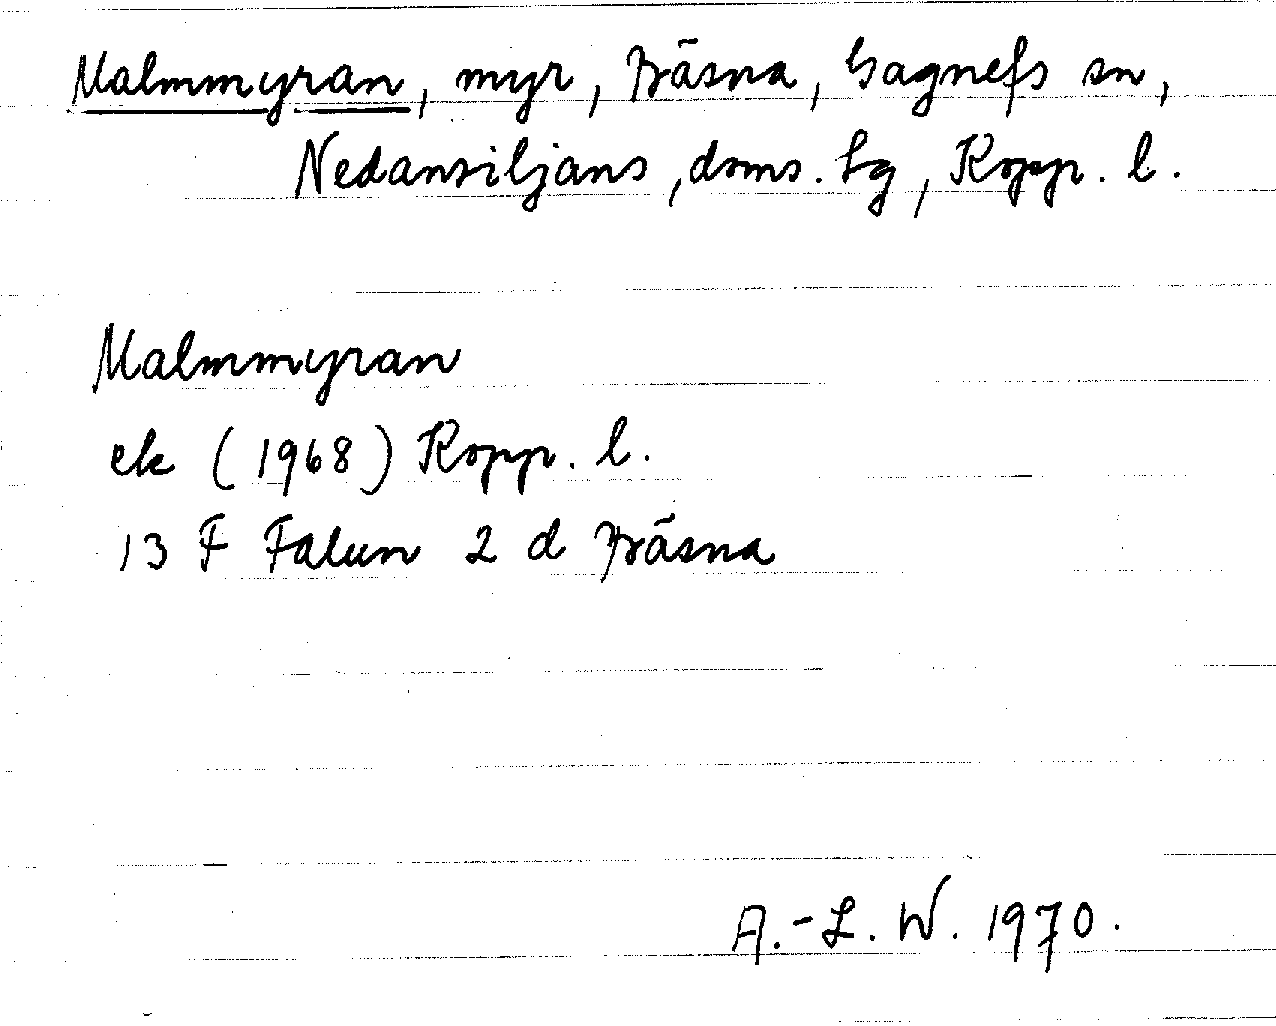 Malmmyran, myr, Bäsna, Gagnefs sn,
Nedansiljans, doms. lg, Kopp. l.
Malmmyran
ek (1968) Kopp. l.
13 F Falun 2 d Bäsna
A.-L. W. 1970.